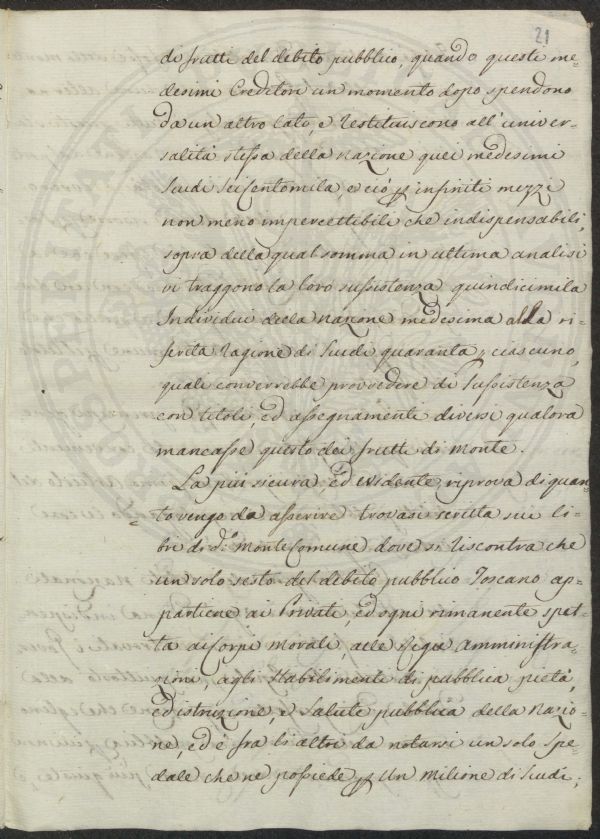 21
di frutti del debito pubblico, quando questi me=
desimi Creditori un momento dopo spendono
da un altro lato, e restituiscono all'univer=
salità stessa della Nazione quei medesimi
Scudi Seicentomila, e ciò p infiniti mezzi
non meno impercettibili che indispensabili,
sopra della qual somma in ultima analisi
vi traggono la loro sussistenza quindicimila
Individui della Nazione medesima alla ri=
ferita Ragione di Scudi quaranta p ciascuno,
quale converrebbe provvedere di Sussistenza
con titoli, ed assegnamenti diversi qualora
mancasse questo dei frutti di Monte.
La più sicura, ed evidente riprova di quan=
to vengo da asserire trovasi scritta sui li=
bri di d.o Monte Comune dove si riscontra che
un solo sesto del debito pubblico Toscano ap=
partiene ai Privati, ed ogni rimanente spet=
ta ai Corpi Morali, alle Regie Amministra=
zioni, agli Stabilimenti di pubblica pietà,
ed istruzione, e Salute pubblica della Nazio=
ne, ed è fra li altri da notarsi un solo Spe=
dale che ne possiede p un Milione di Scudi;